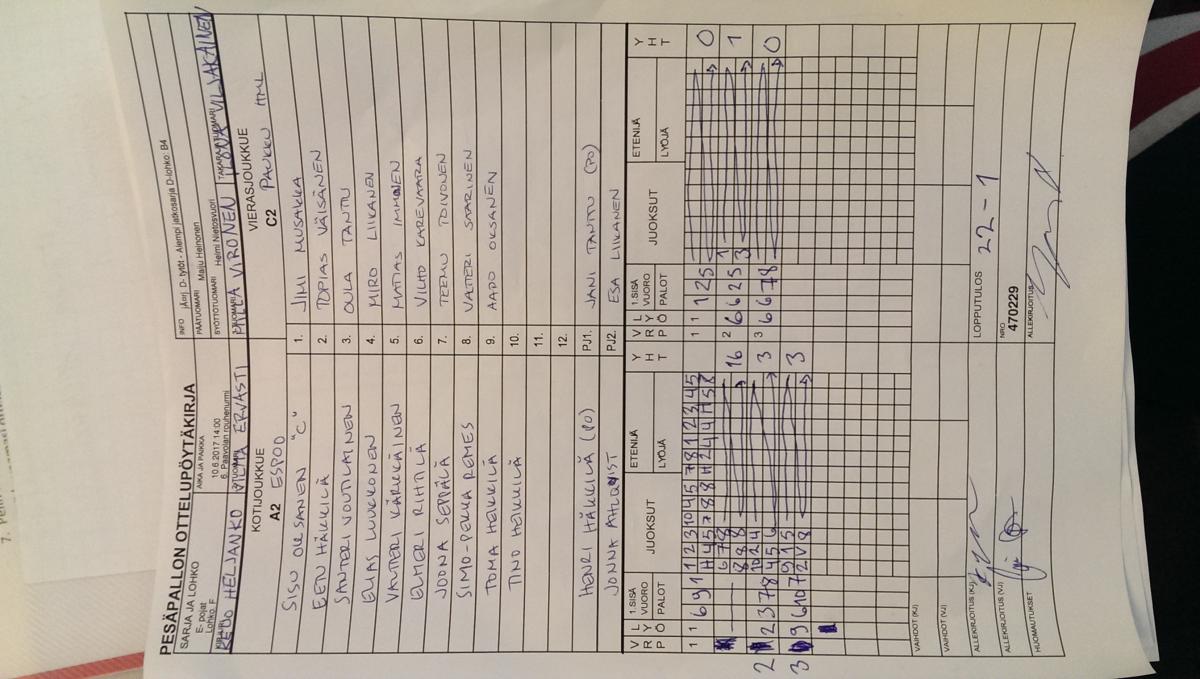 PESÄPALLON OTTELUPÖYTÄKIRJA
SARJA JA LOHKO
E- pojat
Lohko: F
AIKA JA PAIKKA
10.6.2017 14:00
6. Paavolan rouhenurmi
INFO jÄorj. D- tytöt - Alempi jatkosarja D-lohko: B4
PÄÄTUOMARI Maiju Heinonen
SYÖTTÖTUOMARI Helmi Nietosvuori
HELJANKO VILMA ERVASTI MILLA VIRONEN ILONA VILJAKAINEN
KOTIJOUKKUE
A2 ESPOO
VIERASJOUKKUE
C2 PAUKKU HML
SISU OKSANEN "C" 1. JIMI MUSAKKA
EETU HÄKKILÄ 2. TOPIAS VÄISÄNEN
SANTERI VOUTILAINEN 3. OULA TANTTU
ELIAS LUUKKONEN 4. MIRO LIIKANEN
VALTTERI KÄRKKÄINEN 5. MATIAS IMMONEN
ELMERI RIHTILÄ 6. VILHO KAREVAARA
JOONA SEPPÄLÄ 7. TEEMU TOIVONEN
SIMO-PEKKA REMES 8. VALTTERI SAARINEN
TOMA HEIKKILÄ 9. AADO OKSANEN
TINO HEIKKILÄ 10.
11.
12.
HENRI HÄKKILÄ (PO) PJ1. JANI TANTTU (PO)
JONNA AHLQVIST PJ2. ESA LIIKANEN
V R P L Y Ö 1.SISÄ VUORO PALOT JUOKSUT ETENIJÄ LYÖJÄ Y H T V R P L Y Ö 1.SISÄ VUORO PALOT JUOKSUT ETENIJÄ LYÖJÄ Y H T
1 1 6 9 1 1 2 3 10 4 5 7 8 1 2 3 4 5 1 1 1 2 5 0
H 4 5 7 8 8 H 2 4 4 H 5 8
6 7 8 16 2 6 6 2 5 1 1
8 8 8 3
2 2 3 7 8 10 2 4 3 3 6 6 7 8 0
4 5 6
3 9 6 10 7 9 1 5 3
2 V 8
VAIHDOT (KJ)
VAIHDOT (VJ)
ALLEKIRJOITUS (KJ)
LOPPUTULOS 22 - 1
ALLEKIRJOITUS (VJ)
NRO
470229
HUOMAUTUKSET
ALLEKIRJOITUS